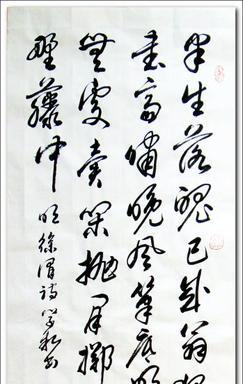 半生落魄已成翁
書齋嘯晚風筆底明
無處賣閑拋閑擲
野藤中 明徐渭詩